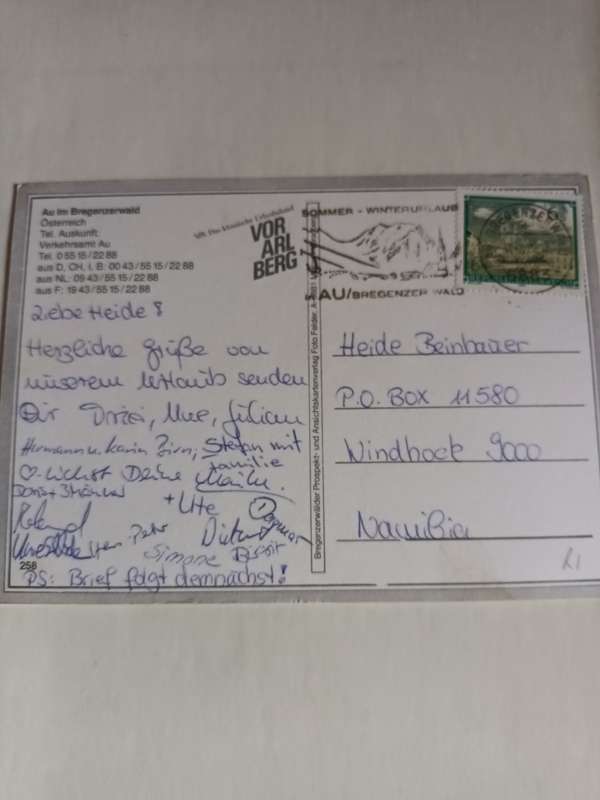 Au im Bregenzerwald
Österreich
Tel. Auskunft:
Verkehrsamt Au
Tel. 0 55 15 / 22 88
aus D, CH, I, B: 00 43 / 55 15 / 22 88
aus NL: 09 43 / 55 15 / 22 88
aus F: 19 43 / 55 15 / 22 88
VOR
ARL
BERG
SOMMER - WINTERURLAUB
AU/BREGENZERWALD
Liebe Heide!
Herzliche Grüße von
unserem Urlaub senden
Dir Uwe, Julian
Hermann u. Karin Stefan mit
Familie
♡-lichst Deine
+ Ute
Dagmar
Peter
Simone Birgit
PS: Brief folgt demnächst!
258
Bregenzerwälder Prospekt- und Ansichtskartenverlag Foto Felder,
Heide Beinhauer
P.O. BOX 11580
Windhoek 9000
Namibia